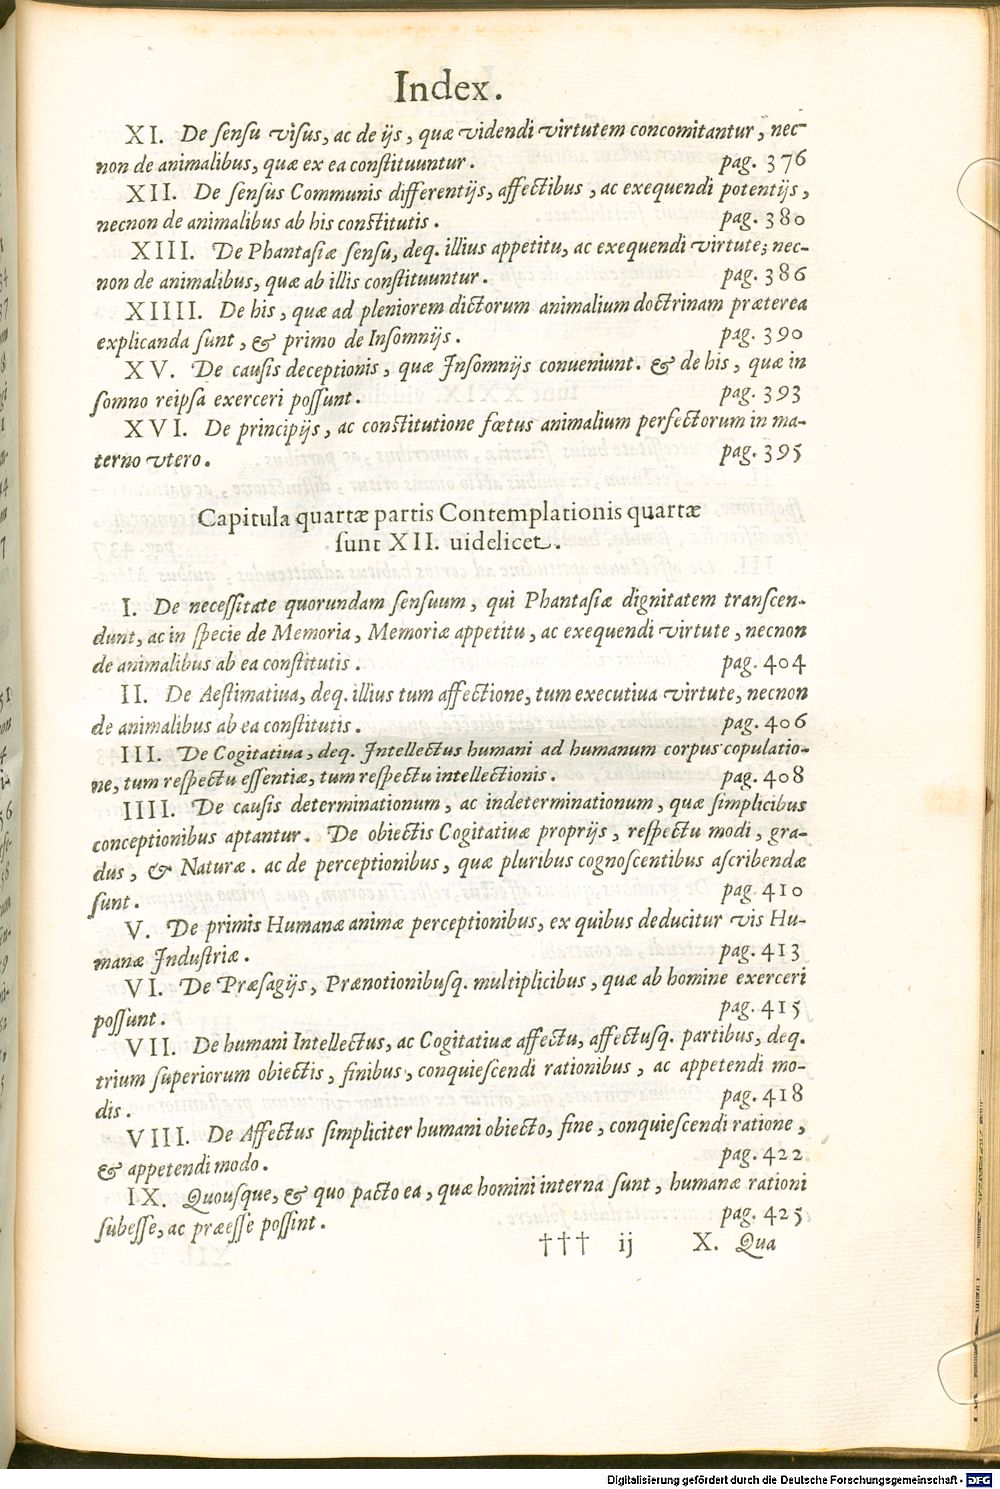 Index.
XI. De sensu visus, ac de ijs, quæ videndi virtutem concomitantur, nec-
non de animalibus, quæ ex ea constituuntur. pag. 376
XII. De sensus Communis differentijs, affectibus, ac exequendi potentijs,
necnon de animalibus ab his constitutis. pag. 380
XIII. De Phantasiæ sensu, deq. illius appetitu, ac exequendi virtute; nec-
non de animalibus, quæ ab illis constituuntur. pag. 386
XIIII. De his, quæ ad pleniorem dictorum animalium doctrinam præterea
explicanda sunt, & primo de Insomnijs. pag. 390
XV. De causis deceptionis, quæ Insomnijs conueniunt. & de his, quæ in
somno reipsa exerceri possunt. pag. 393
XVI. De principijs, ac constitutione fœtus animalium perfectorum in ma-
terno vtero. pag. 395
Capitula quartæ partis Contemplationis quartæ
sunt XII. uidelicet.
I. De necessitate quorundam sensuum, qui Phantasiæ dignitatem transcen-
dunt, ac in specie de Memoria, Memoriæ appetitu, ac exequendi virtute, necnon
de animalibus ab ea constitutis. pag. 404
II. De Aestimatiua, deq. illius tum affectione, tum executiua virtute, necnon
de animalibus ab ea constitutis. pag. 406
III. De Cogitatiua, deq. Intellectus humani ad humanum corpus copulatio-
ne, tum respectu essentiæ, tum respectu intellectionis. pag. 408
IIII. De causis determinationum, ac indeterminationum, quæ simplicibus
conceptionibus aptantur. De obiectis Cogitatiuæ proprijs, respectu modi, gra-
dus, & Naturæ. ac de perceptionibus, quæ pluribus cognoscentibus ascribendæ
sunt. pag. 410
V. De primis Humanæ animæ perceptionibus, ex quibus deducitur vis Hu-
manæ Industriæ. pag. 413
VI. De Præsagijs, Prænotionibusq. multiplicibus, quæ ab homine exerceri
possunt. pag. 415
VII. De humani Intellectus, ac Cogitatiuæ affectu, affectusq. partibus, deq.
trium superiorum obiectis, finibus, conquiescendi rationibus, ac appetendi mo-
dis. pag. 418
VIII. De Affectus simpliciter humani obiecto, fine, conquiescendi ratione,
& appetendi modo. pag. 422
IX. Quousque, & quo pacto ea, quæ homini interna sunt, humanæ rationi
subesse, ac præesse possint. pag. 425
††† ij X. Qua
Digitalisierung gefördert durch die Deutsche Forschungsgemeinschaft - DFG